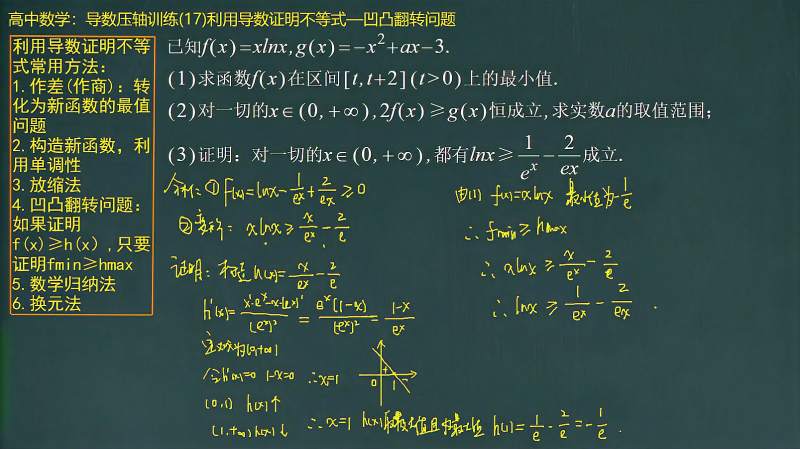 高中数学：导数压轴训练(17)利用导数证明不等式—凹凸翻转问题
利用导数证明不等
式常用方法：
1.作差(作商)：转
化为新函数的最值
问题
2.构造新函数，利
用单调性
3.放缩法
4.凹凸翻转问题：
如果证明
f(x)≥h(x）,只要
证明fmin≥hmax
5.数学归纳法
6.换元法
已知f(x)=xlnx,g(x)=-x²+ax-3.
(1)求函数f(x)在区间[t,t+2](t>0)上的最小值.
(2)对一切的x∈(0,+∞),2f(x)≥g(x)恒成立,求实数a的取值范围；
(3)证明：对一切的x∈(0,+∞),都有lnx≥1/e^x-2/ex成立.
分析：① F(x)=lnx-1/e^x+2/ex≥0
②变形：xlnx≥x/e^x-2/e
证明：构造h(x)=x/e^x-2/e
h'(x)=x'·e^x-x·(e^x)'/(e^x)²=e^x(1-x)/(e^x)²=1-x/e^x
定义域为(0,+∞)
令h'(x)=0 1-x=0 ∴x=1
(0,1) h(x)↑
(1,+∞)h(x)↓
0
1
+
-
∴x=1 h(x)取极大值且为最大值 h(1)=1/e-2/e=-1/e.
由(1) f(x)=xlnx 最小值为-1/e
∴fmin≥hmax
∴xlnx≥x/e^x-2/e
∴lnx≥1/e^x-2/ex.